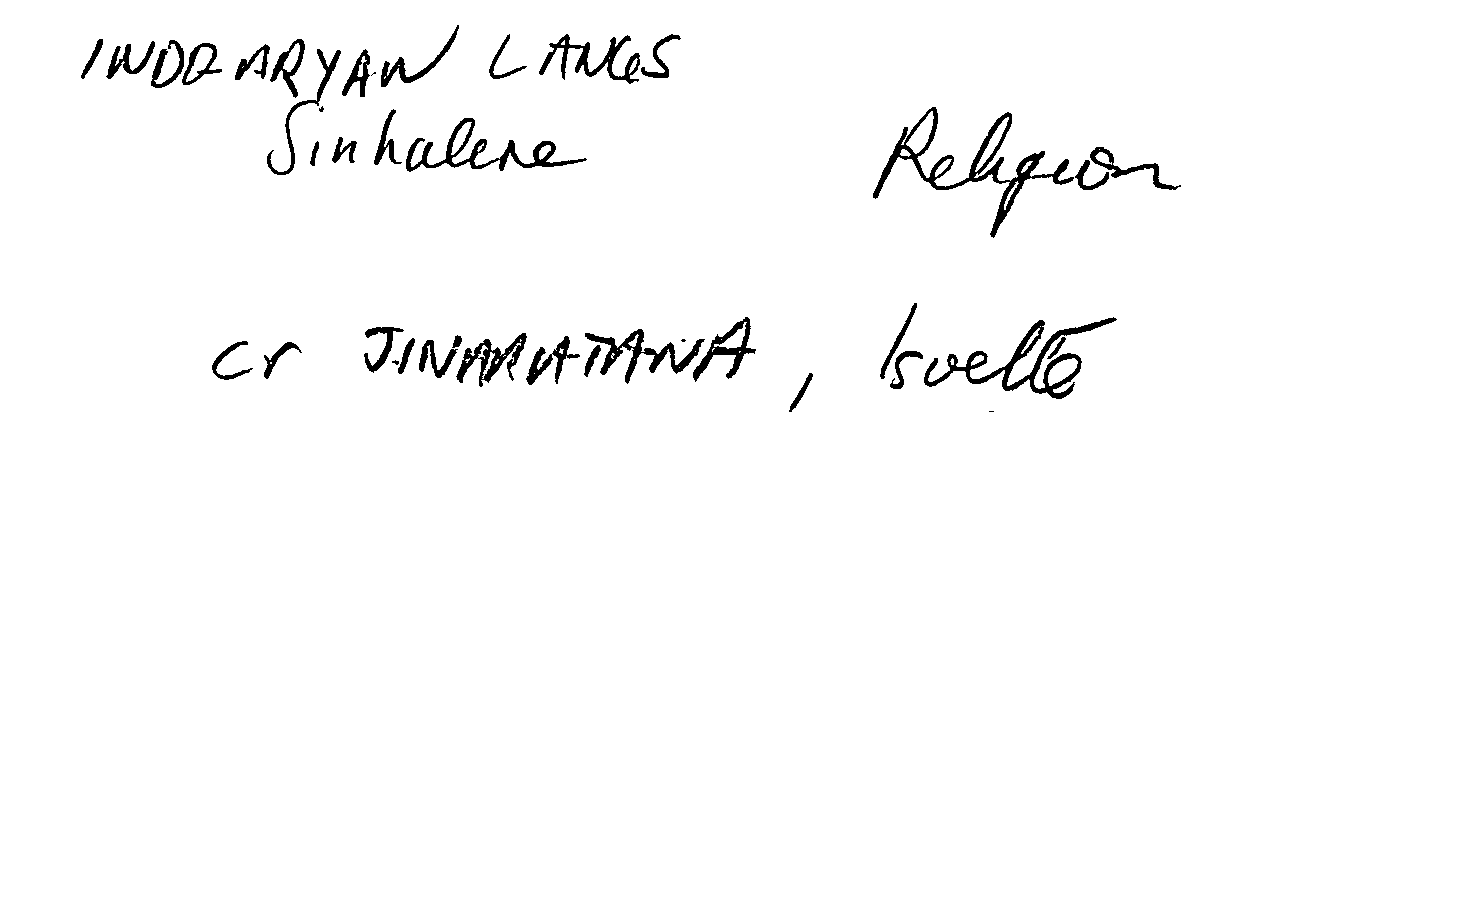 INDOARYAN LANGS
Sinhalese
Religion
cr JINARATANA,